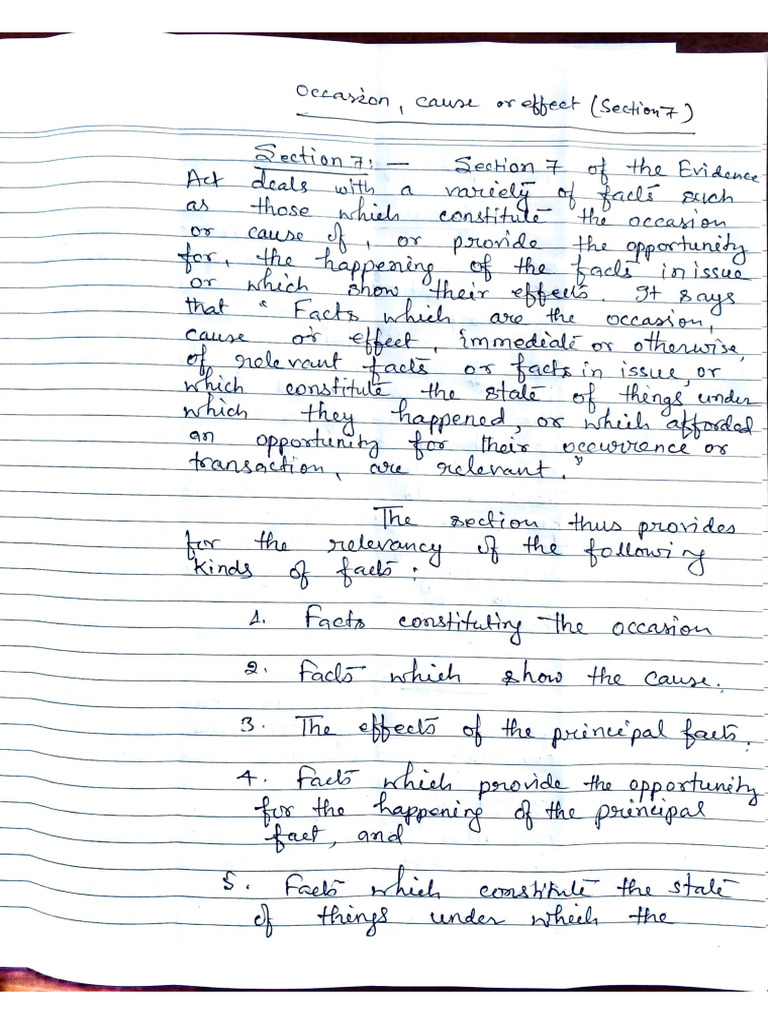 Occasion, cause or effect (Section 7)
Section 7: — Section 7 of the Evidence
Act deals with a variety of facts such
as those which constitute the occasion
or cause of, or provide the opportunity
for, the happening of the facts in issue
or which show their effects. It says
that " Facts which are the occasion,
cause or effect, immediate or otherwise,
of relevant facts or facts in issue, or
which constitute the state of things under
which they happened, or which afforded
an opportunity for their occurrence or
transaction, are relevant."
The section thus provides
for the relevancy of the following
kinds of facts:
1. Facts constituting the occasion
2. Facts which show the cause.
3. The effects of the principal facts.
4. Facts which provide the opportunity
for the happening of the principal
fact, and
5. Facts which constitute the state
of things under which the